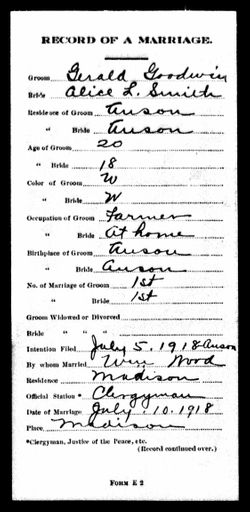 RECORD OF A MARRIAGE.
Groom Gerald Goodwin
Bride Alice L. Smith
Residence of Groom Anson
" Bride Anson
Age of Groom 20
" Bride 18
Color of Groom W
" Bride W
Occupation of Groom Farmer
" Bride At home
Birthplace of Groom Anson
" Bride Anson
No. of Marriage of Groom 1st
" Bride 1st
Groom Widowed or Divorced
Bride " " "
Intention Filed July 5, 1918 Anson
By whom Married Wm Wood
Residence Madison
Official Station * Clergyman
Date of Marriage July 10, 1918
Place, Madison
*Clergyman, Justice of the Peace, etc.
(Record continued over.)
FORM E 2